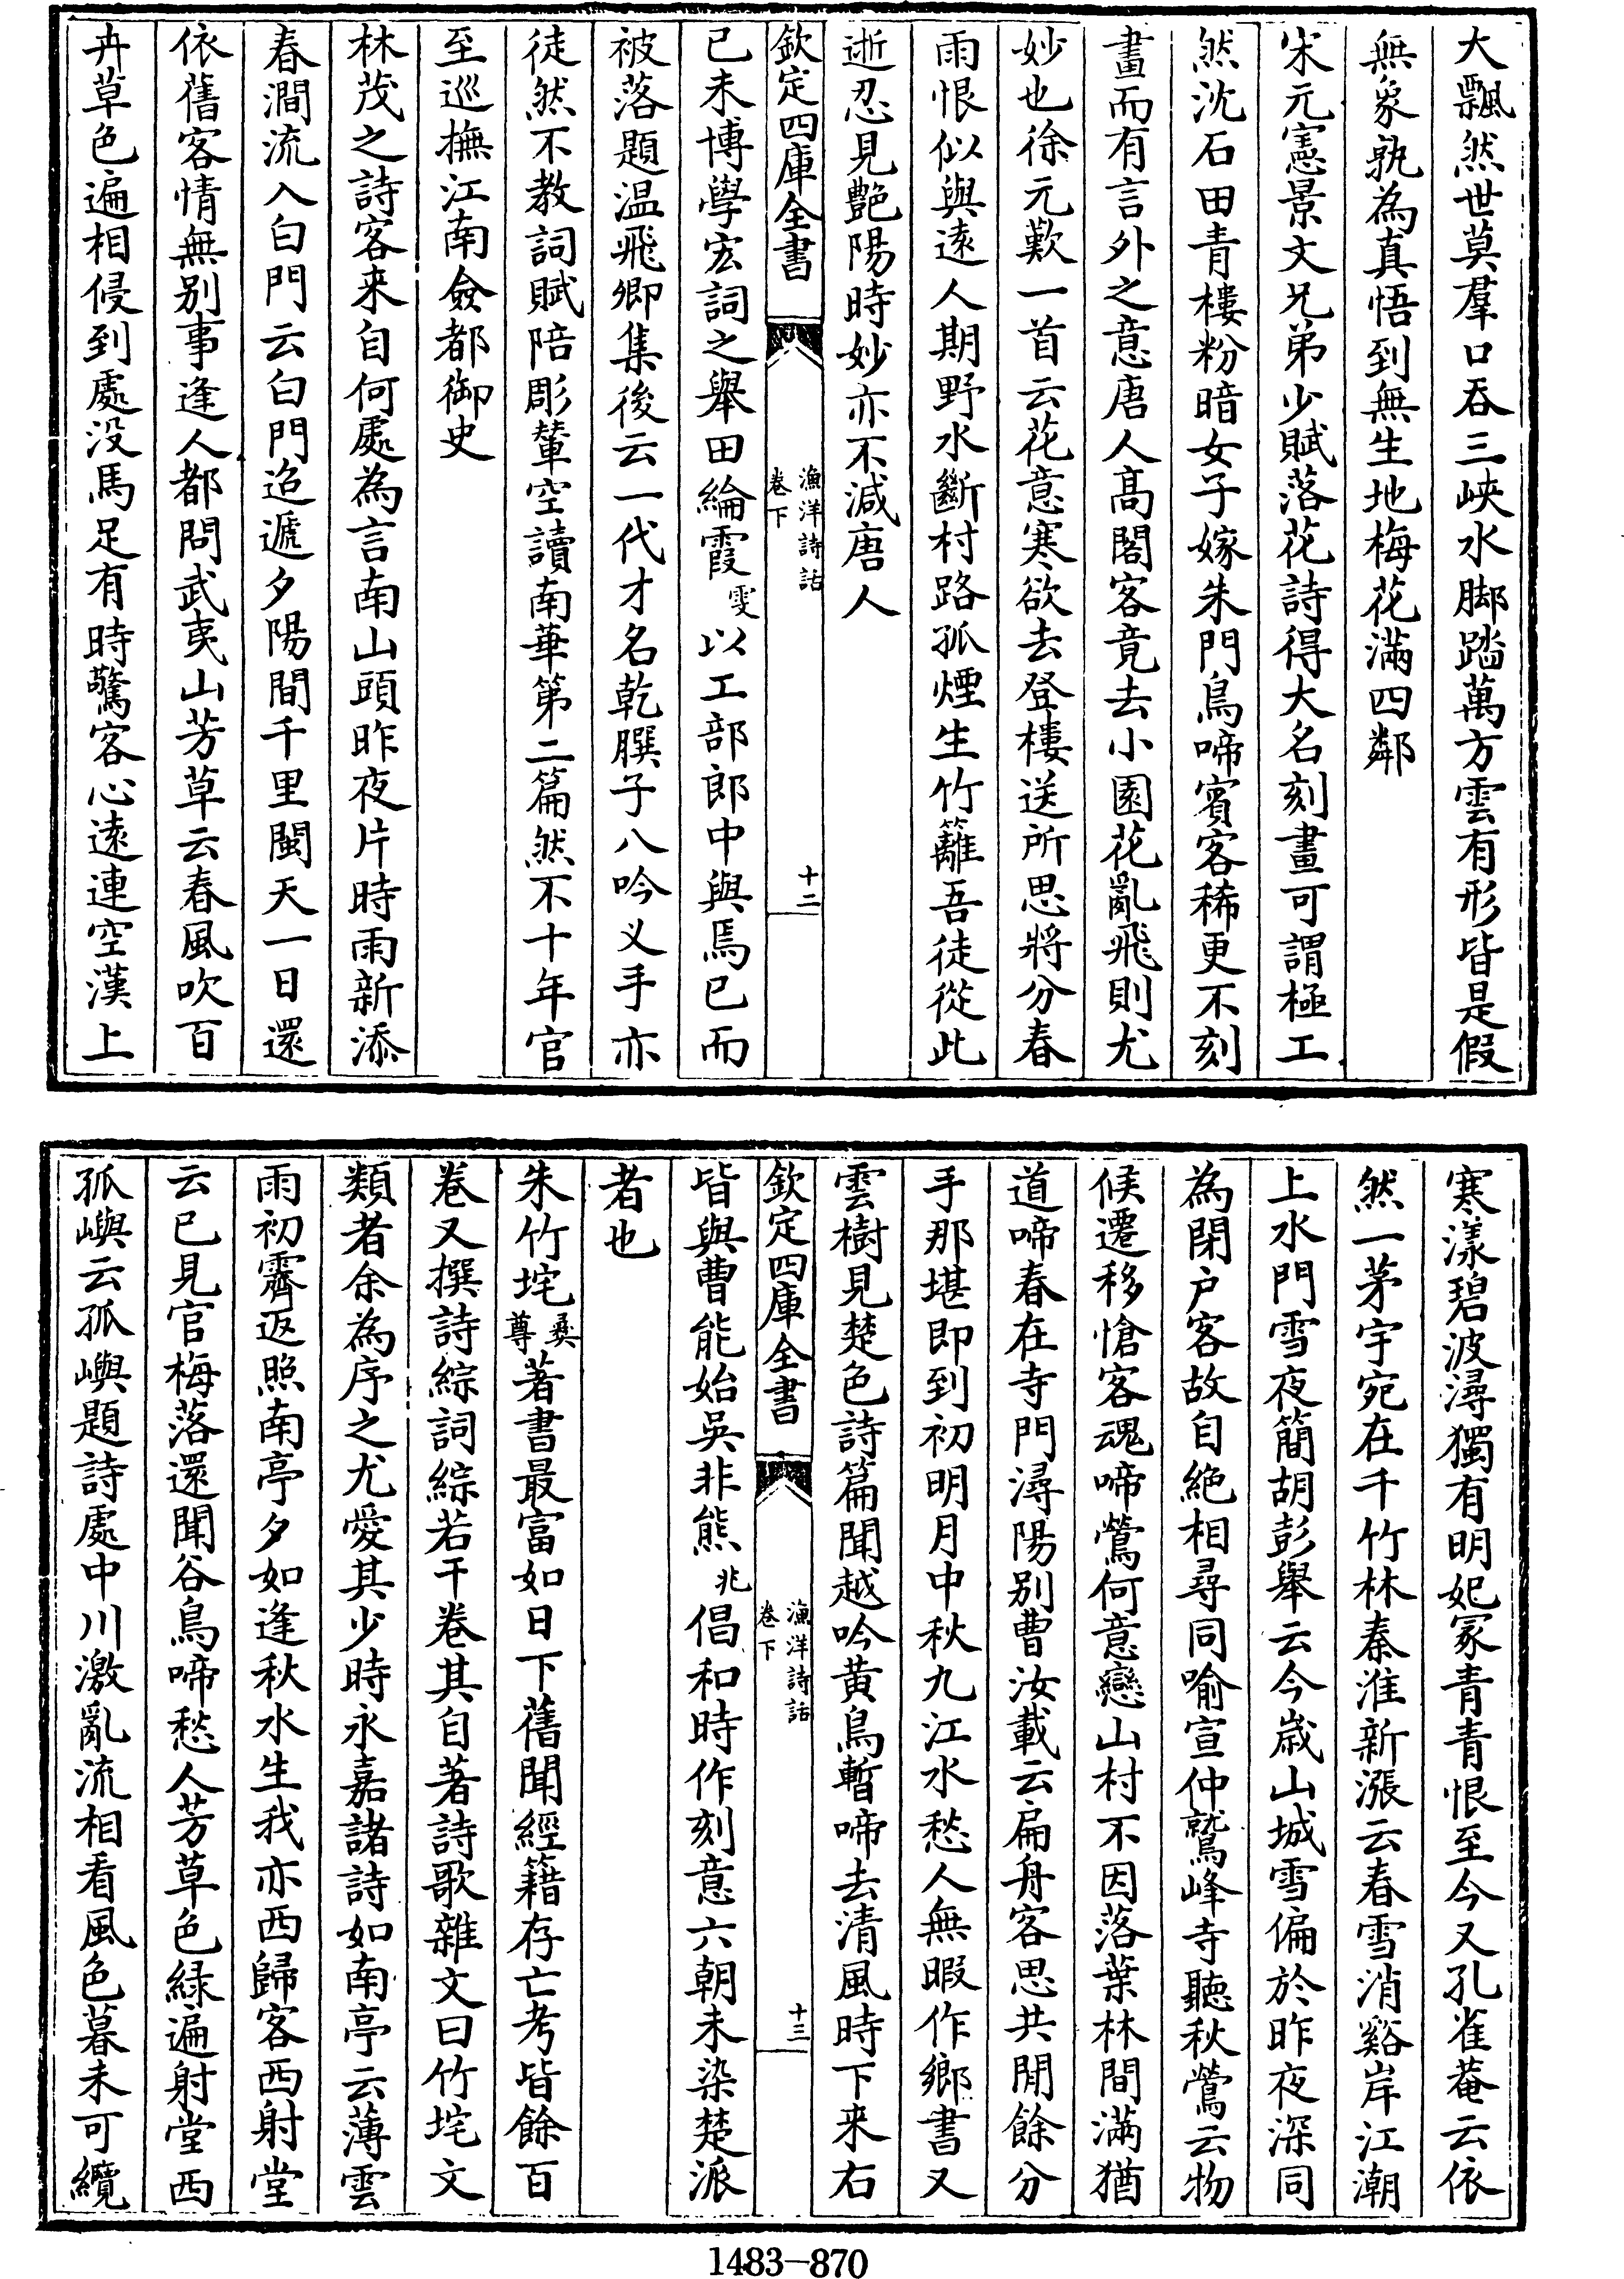 大飄然世莫羣口吞三峽水脚踏萬方雲有形皆是假
無象孰為真悟到無生地梅花滿四鄰
宋元憲景文兄弟少賦落花詩得大名刻畫可謂極工
然沈石田青樓粉暗女子嫁朱門鳥啼賓客稀更不刻
畫而有言外之意唐人高閣客竟去小園花亂飛則尤
妙也徐元歎一首云花意寒欲去登樓送所思將分春
雨恨似與遠人期野水斷村路孤煙生竹籬吾徒從此
逝忍見艷陽時妙亦不減唐人
欽定四庫全書 漁洋詩話卷下 十二
已未博學宏詞之舉田綸霞雯以工部郎中與焉已而
被落題温飛卿集後云一代才名乾𦠆子八吟义手亦
徒然不教詞賦陪彫輦空讀南華第二篇然不十年官
至巡撫江南僉都御史
林茂之詩客來自何處為言南山頭昨夜片時雨新添
春澗流入白門云白門迢遞夕陽間千里閩天一日還
依舊客情無别事逢人都問武夷山芳草云春風吹百
卉草色遍相侵到處没馬足有時驚客心遠連空漢上
寒漾碧波潯獨有明妃冢青青恨至今又孔雀菴云依
然一茅宇宛在千竹林秦淮新漲云春雪消谿岸江潮
上水門雪夜簡胡彭舉云今歲山城雪偏於昨夜深同
為閉户客故自絶相尋同喻宣仲鷲峰寺聽秋鶯云物
候遷移愴客魂啼鶯何意戀山村不因落葉林間滿猶
道啼春在寺門潯陽别曹汝載云扁舟客思共閒餘分
手那堪即到初明月中秋九江水愁人無暇作鄉書又
雲樹見楚色詩篇聞越吟黄鳥暫啼去清風時下來右
欽定四庫全書 漁洋詩話卷下 十三
皆與曹能始吳非熊兆倡和時作刻意六朝未染楚派
者也
朱竹垞彝尊著書最富如日下舊聞經籍存亡考皆餘百
卷又撰詩綜詞綜若干卷其自著詩歌雜文曰竹垞文
類者余為序之尤愛其少時永嘉諸詩如南亭云薄雲
雨初霽返照南亭夕如逢秋水生我亦西歸客西射堂
云已見官梅落還聞谷鳥啼愁人芳草色緑遍射堂西
孤嶼云孤嶼題詩處中川激亂流相看風色暮未可纜
1483—870